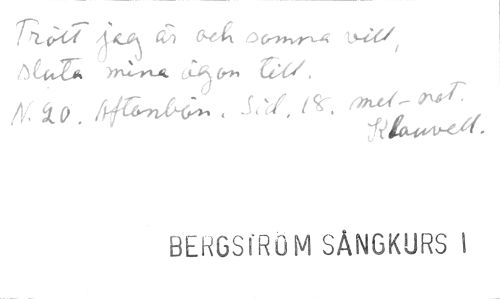 Trött jag är och somna vill,
sluta mina ögon till.
N. 20. Aftonbön. Sid. 18. mel-not.
Klauvell.
BERGSTRÖM SÅNGKURS I